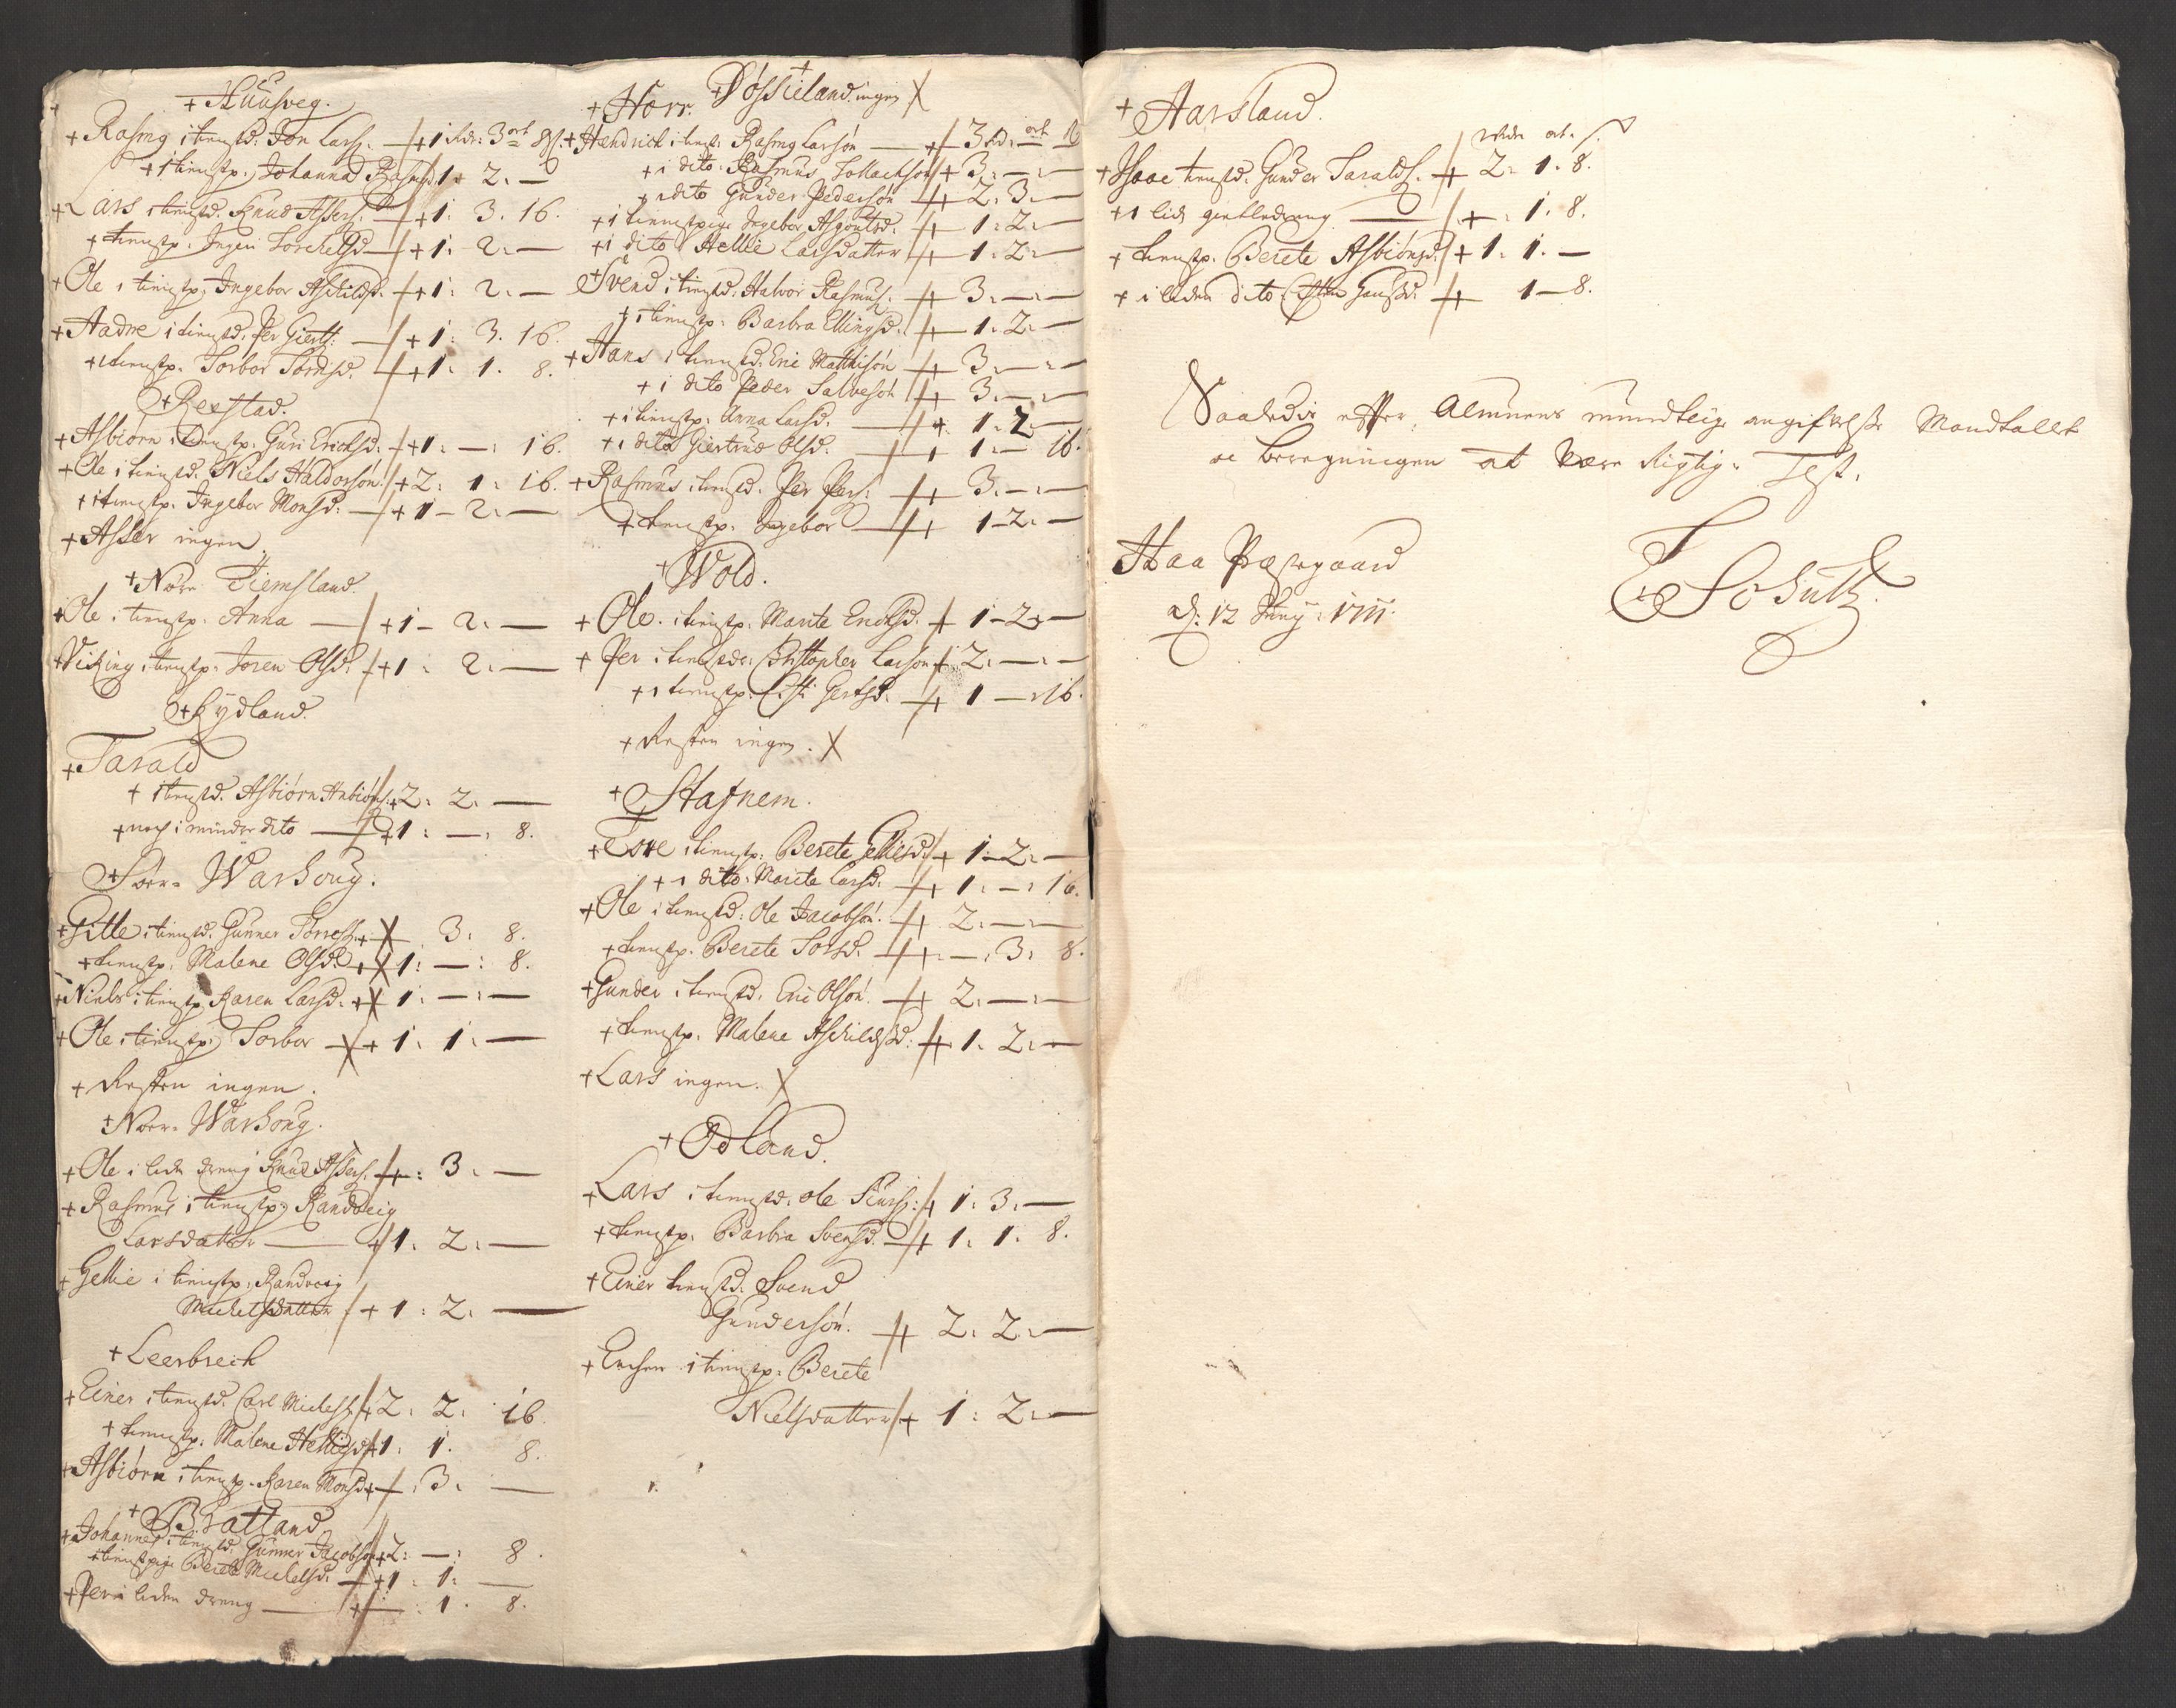 + Huusveg.
+ Rasmg i tienstd: Jon Lars: + 1 Rdr: 3 ort 8 s.
+ 1 tienstp. Johanna Rasmsd + 1. 2. —
+ Lars i tienstd. Knud Assers: + 1. 3. 16.
+ tienstp. Ingeri Torchelsd + 1: 2. —
+ Ole i tienstp: Ingebor Aschildsd: + 1: 2. —
+ Aadne i tienstd: Per Giertt: + 1: 3. 16.
+ 1 tienstp. Torbor Tordsd. + 1. 1. 8.
+ Reestad.
+ Asbiørn i tienstp. Guri Erichsd. + 1: —: 16.
+ Ole i tienstd. Niels Haldorsøn + 2: 1: 16.
+ 1 tienstp. Ingebor Monsd: + 1 – 2. —
+ Asser ingen.
+ Nør Tiemsland.
+ Ole i tienstp. Anna + 1 – 2. —
+ Vicking i tienstp: Joren Olsd. + 1: 2. —
+ Rydland.
+ Tarald
+ 1 tienstd. Asbiørn Anbiøns. + 2: 2. —
+ noch i mindre dito + 1: —: 8.
+ Søer. Warhoug.
+ Gitle i tienstd. Gunner Torres. + 3: 8.
+ tienstp: Malene Olsd: + 1: —: 8.
+ Niels i tienstp Karen Larsd: + 1: —: —
+ Ole i tienstp. Torbor + 1: 1. —
+ Resten ingen.
+ Noer. Warhoug.
+ Ole i liden dreng Knud Assers. + : 3. —
+ Rasmus i tienstp: Randveig
Larsdatter + 1. 2. —
+ Gellie i tienstp: Randveig
Michelsdatter + 1: 2. —
+ Leerbrech
+ Einer i tienstd. Carl Michels. + 2. 2. 16
+ tienstp. Malene Hellisd + 1. 1. 8.
+ Asbiørn i tienstp. Karen Monsd: + . 3. —
+ Bratland
+ Johannes i tienstd. Gunner Jacobsøn + 2: —: 8.
+ tienstpige Berete Michelsd. + 1: 1: —
+ Per i liden dreng + — : 1. 8.
+ Horr. + Døssieland ingen X
+ Hendrich i tienst: Rasmg Larsøn + 3 Rd: ort 16
+ i dito: Rasmus Tollachsøn + 3. — . —
+ 1 dito Gunder Pedersøn + 2. 3. —
+ i tienstpige Ingebor Asgoutsd. + 1: 2. —
+ i dito Hellie Larsdatter + 1: 2: —
+ Svend i tienstd: Halvor Rasmus. + 3. — . —
+ 1 tienstp: Barbra Ellingsd. + 1. 2. —
+ Hans i tienstd. Eric Matthisøn + 3. — . —
+ i dito Peder Salvesøn + 3. — . —
+ i tienstp: Anna Larsd. + 1. 2. —
+ 1 dito Giertrud Olsd. + 1. — 16.
+ Rasmus i tienstd. Per Pers: + 3. — . —
+ tienstp. Ingebor + 1 – 2. —
+ Wold.
+ Ole. i tienstp. Marite Erichsd. + 1 – 2 —
+ Per i tienstdr: Christopher Larsøn + 2. — . —
+ 1 tienstp. Citti Gertsd. + 1 — . 16.
+ Resten ingen. X
+ Stafnem.
+ Tore i tienstp: Berete Ellisd: + 1 – 2. —
+ 1 dito. Marite Larsd. + 1. — : 16.
+ Ole i tienstd: Ole Jacobsøn. + 2. — . —
+ tienstp. Berete Torsd. + . — . 3. 8.
+ Gunder i tienstd, Eric Olsøn. + 2. — . —
+ tienstp. Malene Aschildsd: + 1. 2. —
+ Lars ingen. X
+ Odland.
+ Lars i tienstd: ole Siurs: + 1. 3. —
+ tienstp. Barbra Svensd. + 1. 1. 8.
+ Einer tienstd. Svend
Gundersøn. + 2. 2. —
+ Enchen i tienstp: Berete
Nielsdatter + 1: 2. —
+ Aarsland.
Rdr ort. s
+ Isaac tienstd. Gunder Taralds. + 2: 1. 8.
+ 1 liden gietledreng + : 1. 8.
+ tienstp. Berete Asbiønsd. + 1. 1. —
+ i liden dito Citti Gautsd: + 1 – 8.
Saaledis efter Almuens mundtlige angifvelse Mandtallet
oc beregningen at være Rigtig. Test.
Haa Præstegaard
d: 12 Junij: 1711.
Schultz.